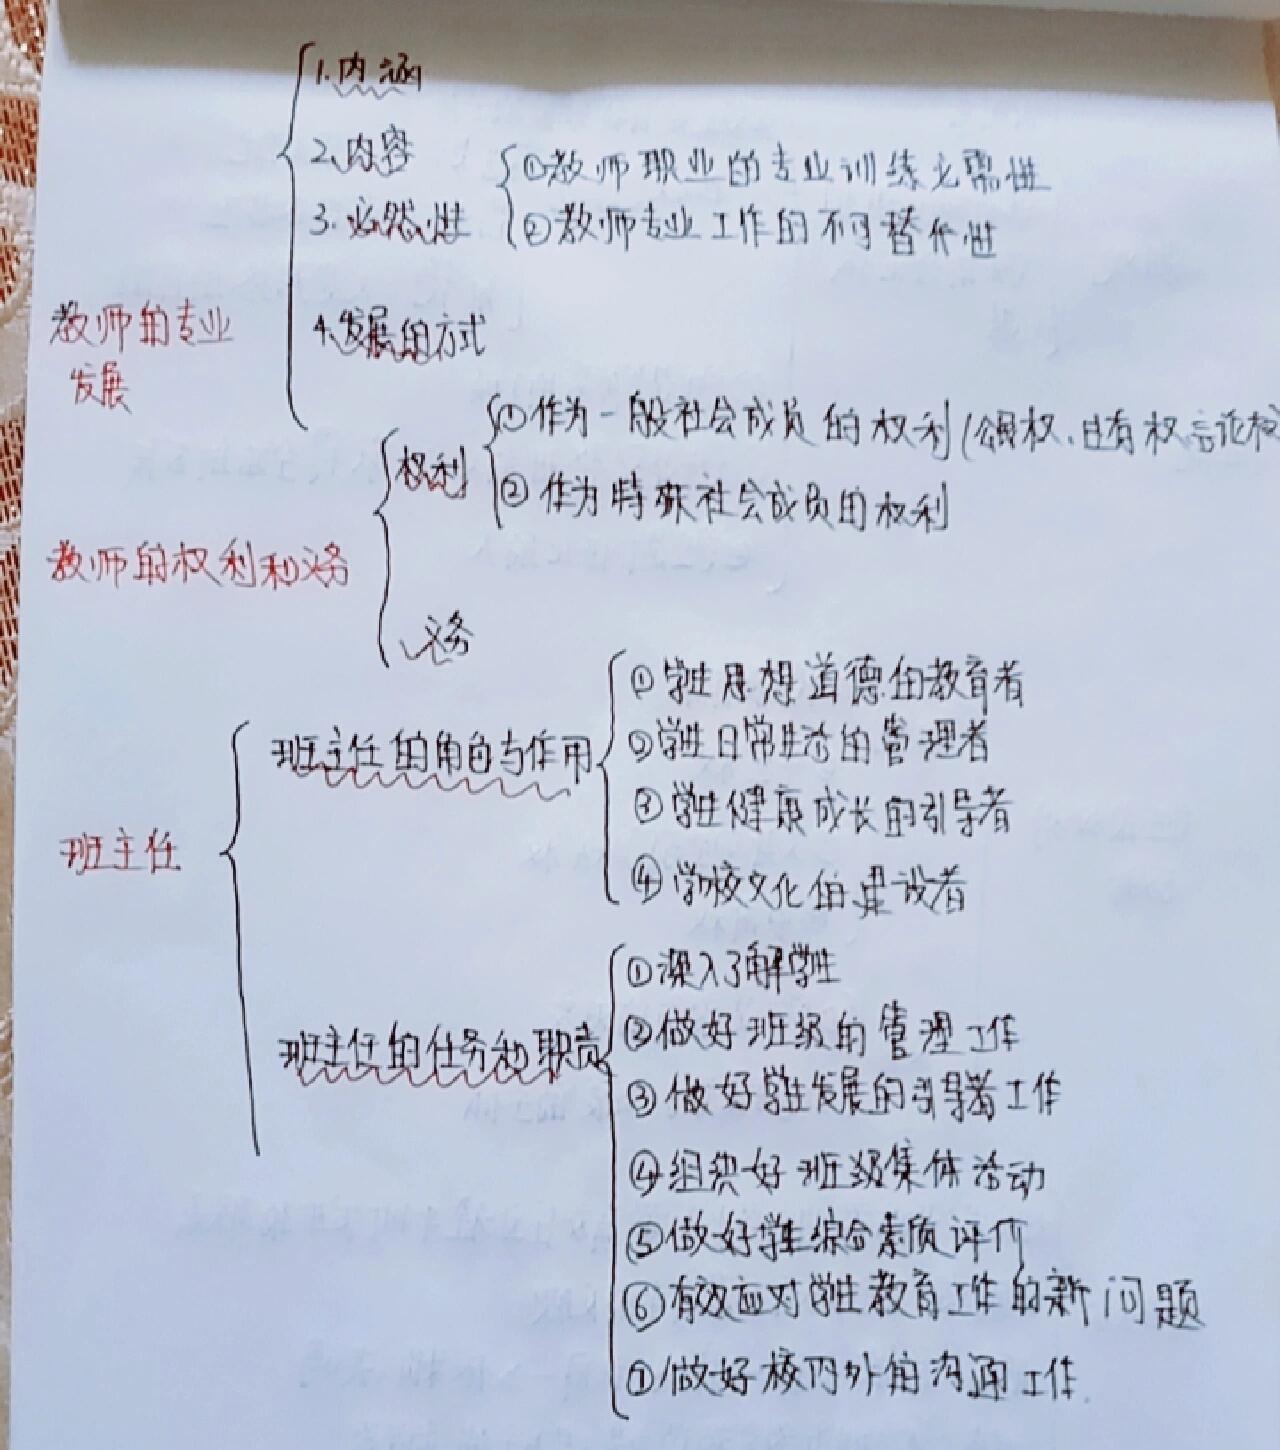 1.内涵
2.内容
①教师职业的专业训练必需性
3.必然性
②教师专业工作的不可替代性
教师的专业
发展
4.发展的方式
权利
①作为一般社会成员的权利(公民权、自有权言论权
②作为特殊社会成员的权利
教师的权利和义务
义务
班主任
班主任的角色与作用
①学生思想道德的教育者
②学生日常生活的管理者
③学生健康成长的引导者
④学校文化的建设者
班主任的任务和职责
①深入了解学生
②做好班级的管理工作
③做好学生发展的引导者工作
④组织好班级集体活动
⑤做好学生综合素质评价
⑥有效应对学生教育工作的新问题
⑦做好校内外的沟通工作